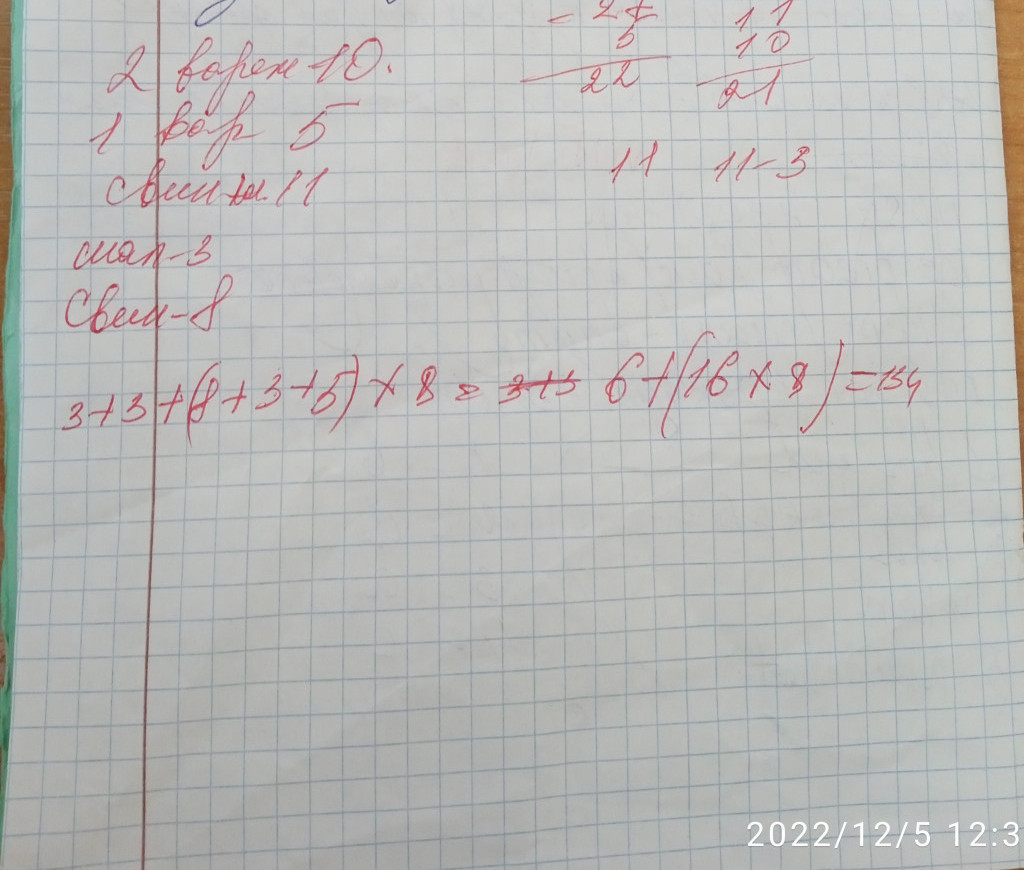 - 27 11
2 вареж 10. 5 10
22 21
1 вар 5
11 11-3
свинья. 11
шап-3
Свин-8
3+3+(8+3+5)×8= 3+3 6+(16×8)=134
2022/12/5 12:3